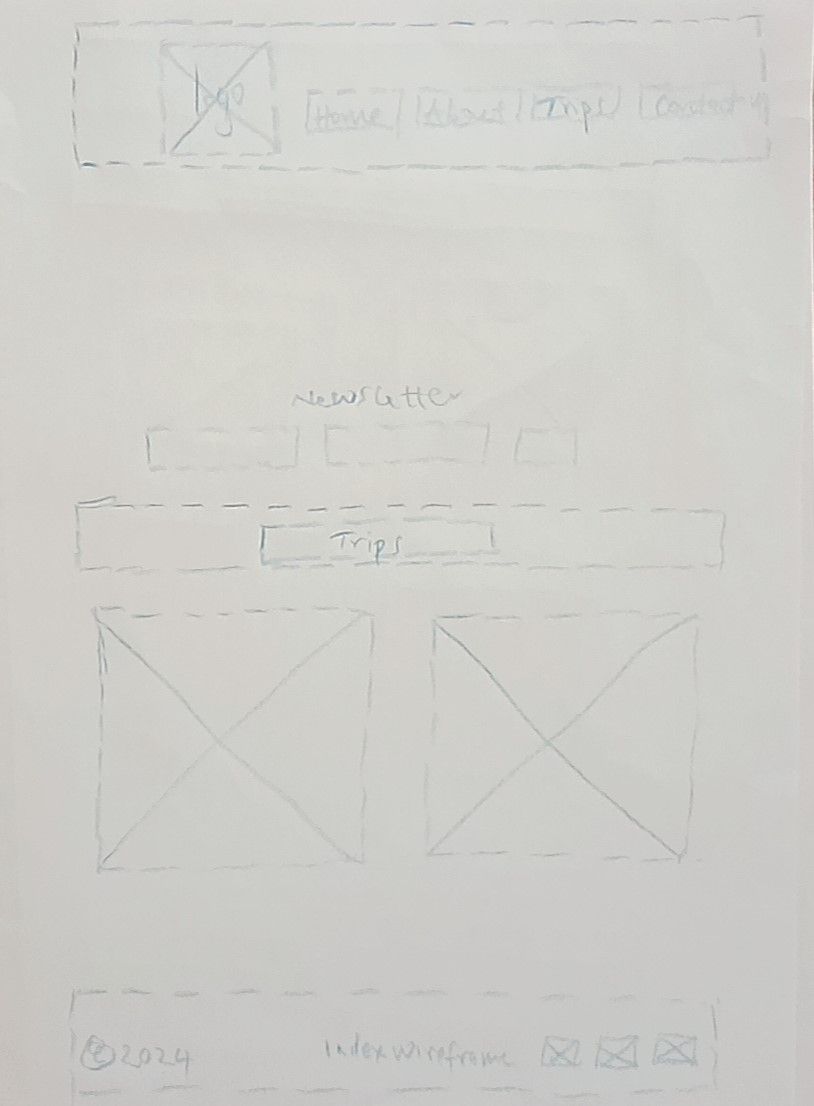 logo
Home About Trips Contact
Newsletter
Trips
©2024 Index wireframe